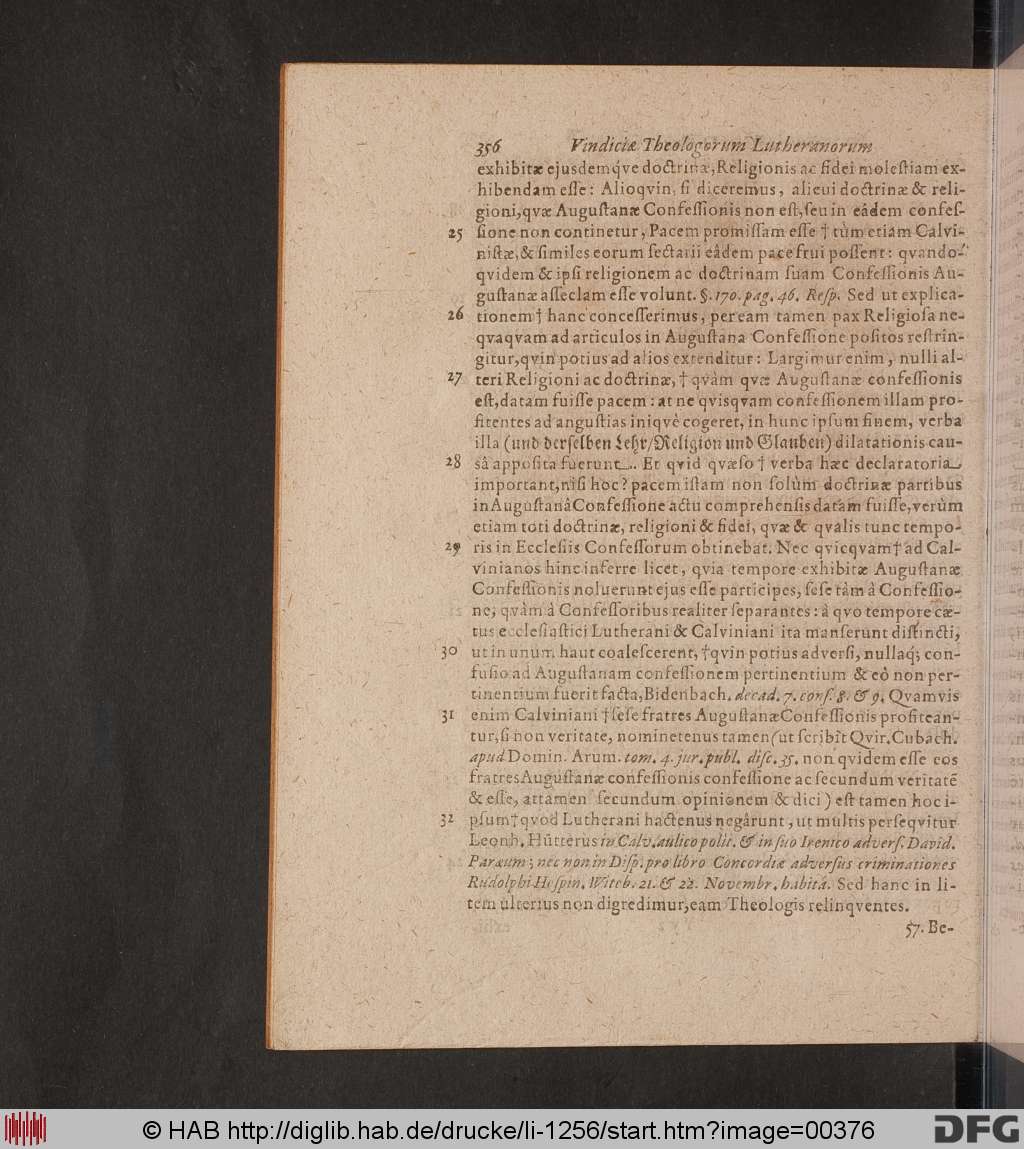 356 Vindiciæ Theologorum Lutheranorum
exhibitæ ejusdemq́ve doctrinæ, Religionis ac fidei moleſtiam ex-
hibendam eſſe: Alioqvin, ſi diceremus, alicui doctrinæ & reli-
gioni, qvæ Auguſtanæ Confeſſionis non eſt, ſeu in eâdem confeſ-
25 ſione non continetur, Pacem promiſſam eſſe † tùm etiam Calvi-
niſtæ, & ſimiles eorum ſectarii eâdem pace frui poſſent: qvando-
qvidem & ipſi religionem ac doctrinam ſuam Confeſſionis Au-
guſtanæ aſſeclam eſſe volunt. §. 170. pag. 46. Reſp. Sed ut explica-
26 tionem † hanc conceſſerimus, per eam tamen pax Religioſa ne-
qvaqvam ad articulos in Auguſtana Confeſſione poſitos reſtrin-
gitur, qvin potius ad alios extenditur: Largimur enim, nulli al-
27 teri Religioni ac doctrinæ, † qvàm qvæ Auguſtanæ confeſſionis
eſt, datam fuiſſe pacem: at ne qvisqvam confeſſionem illam pro-
fitentes ad anguſtias iniqvè cogeret, in hunc ipſum finem, verba
illa (und derſelben Lehr/Religion und Glauben) dilatationis cau-
28 sâ appoſita fuerunt. Et qvid qvæſo † verba hæc declaratoria
important, niſi hoc? pacem iſtam non ſolùm doctrinæ partibus
in Auguſtanâ Confeſſione actu comprehenſis datam fuiſſe, verùm
etiam toti doctrinæ, religioni & fidei, qvæ & qvalis tunc tempo-
29 ris in Eccleſiis Confeſſorum obtinebat. Nec qvicqvam † ad Cal-
vinianos hinc inferre licet, qvia tempore exhibitæ Auguſtanæ
Confeſſionis noluerunt ejus eſſe participes, ſeſe tàm à Confeſſio-
ne, qvàm à Confeſſoribus realiter ſeparantes: à qvo tempore cæ-
tus eccleſiaſtici Lutherani & Calviniani ita manſerunt diſtincti,
30 ut in unum haut coaleſcerent, † qvin potius adverſi, nullaq́; con-
fuſio ad Auguſtanam confeſſionem pertinentium & eò non per-
tinentium fuerit facta, Bidenbach. decad. 7. conſ. 8. & 9. Qvamvis
31 enim Calviniani † ſeſe fratres Auguſtanæ Confeſſionis profitean-
tur, ſi non veritate, nomine tenus tamen (ut ſcribit Qvir. Cubach.
apud Domin. Arum. tom. 4. jur. publ. diſc. 35. non qvidem eſſe eos
fratres Auguſtanæ confeſſionis confeſſione ac ſecundum veritatē
& eſſe, attamen ſecundum opinionem & dici) eſt tamen hoc i-
32 pſum † qvod Lutherani hactenus negârunt, ut multis perſeqvitur
Leonh. Hütterus in Calv. aulico polit. & in ſuo Irenico adverſ. David.
Paræum; nec non in Diſp. pro libro Concordiæ adverſus criminationes
Rudolphi Hoſpin. Witeb. 21. & 22. Novembr. habitâ. Sed hanc in li-
tem ulterius non digredimur, eam Theologis relinqventes.
57. Be-
© HAB http://diglib.hab.de/drucke/li-1256/start.htm?image=00376
DFG